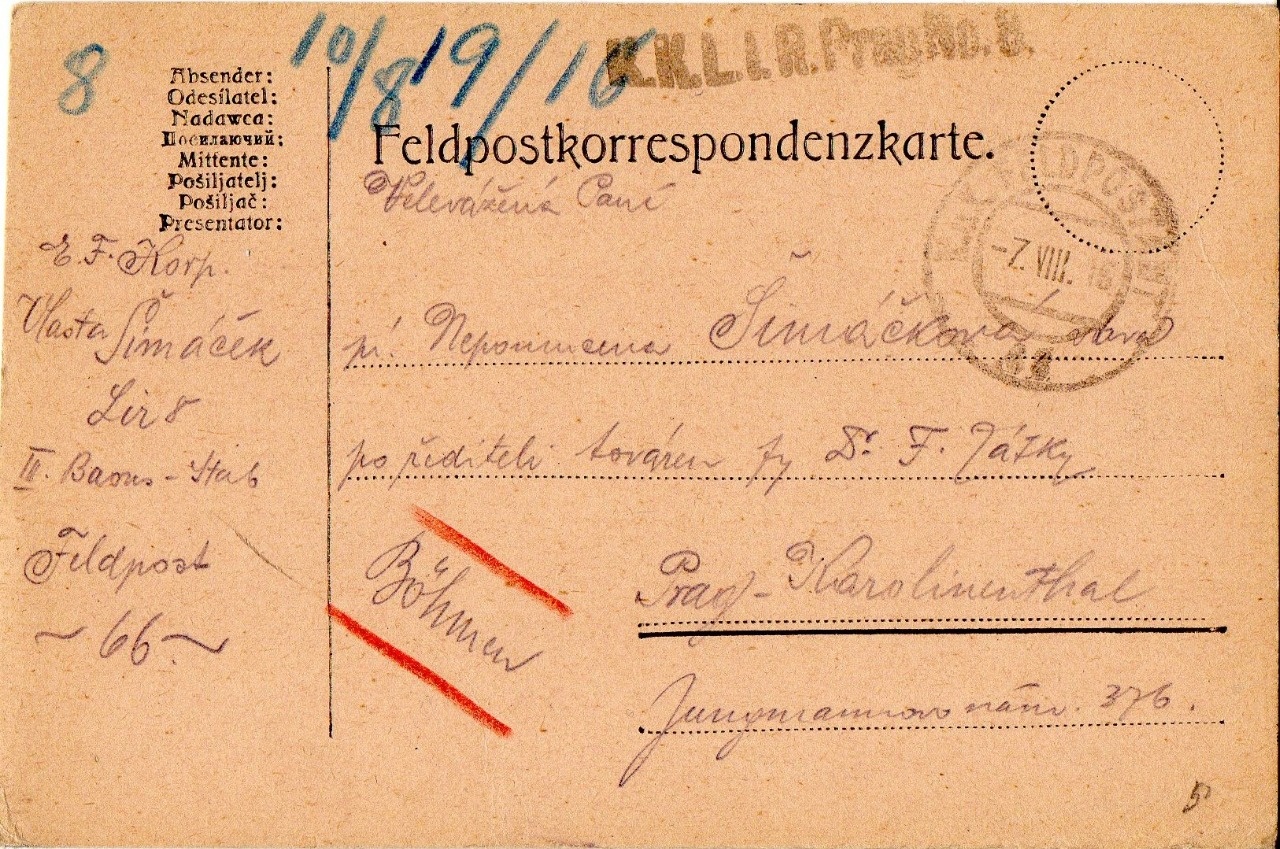 8
10/8 19/16
K.K.L.I.R. Prag No. 8.
Absender:
Odesílatel:
Nadawca:
Посилаючий:
Mittente:
Pošiljatelj:
Pošiljač:
Presentator:
Feldpostkorrespondenzkarte.
K.u.K. FELDPOSTAMT
-7. VIII. 16
E. F. Korp.
Vlasta
Šimáček
Lir 8
III. Baons-Stab
Feldpost
~ 66 ~
Velevážená Paní
pí. Nepomucena Šimáčková
po řediteli továren fy Dr. F.
Böhmen
Prag-Karolinenthal
Jungmannovo nám. 376.
5